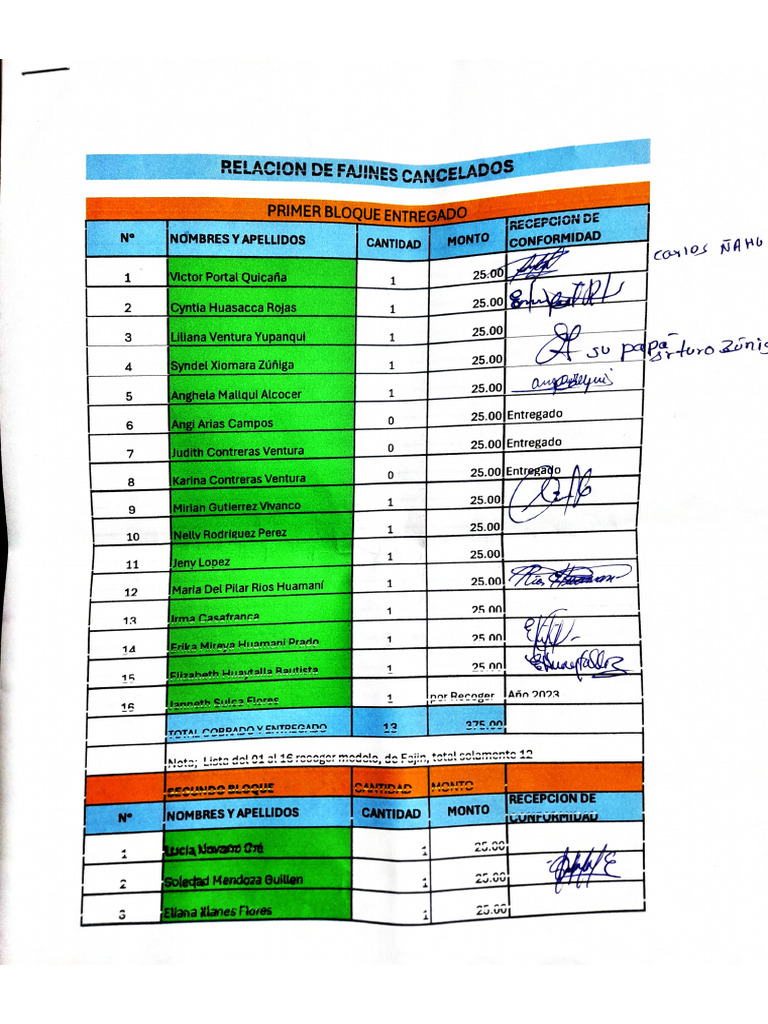 RELACION DE FAJINES CANCELADOS
PRIMER BLOQUE ENTREGADO
Nº NOMBRES Y APELLIDOS CANTIDAD MONTO RECEPCION DE CONFORMIDAD
1 Victor Portal Quicaña 1 25.00
Carlos ÑAHU
2 Cyntia Huasacca Rojas 1 25.00
3 Liliana Ventura Yupanqui 1 25.00
4 Syndel Xiomara Zúñiga 1 25.00 su papá Arturo Zúñig
5 Anghela Mallqui Alcocer 1 25.00
6 Angi Arias Campos 0 25.00 Entregado
7 Judith Contreras Ventura 0 25.00 Entregado
8 Karina Contreras Ventura 0 25.00 Entregado
9 Mirian Gutierrez Vivanco 1 25.00
10 Nelly Rodriguez Perez 1 25.00
11 Jeny Lopez 1 25.00
12 Maria Del Pilar Rios Huamaní 1 25.00
13 Irma Casafranca 1 25.00
14 Erika Mireya Huamani Prado 1 25.00
15 Elizabeth Huaytalla Bautista 1 25.00
16 Janneth Sulca Flores 1 por Recoger Año 2023
TOTAL COBRADO Y ENTREGADO 13 375.00
Nota; Lista del 01 al 16 recoger modelo, de Fajin, total solamente 12
SEGUNDO BLOQUE CANTIDAD MONTO
Nº NOMBRES Y APELLIDOS CANTIDAD MONTO RECEPCION DE CONFORMIDAD
1 Lucia Navarro Oré 1 25.00
2 Soledad Mendoza Guillen 1 25.00
3 Eliana Illanes Flores 1 25.00